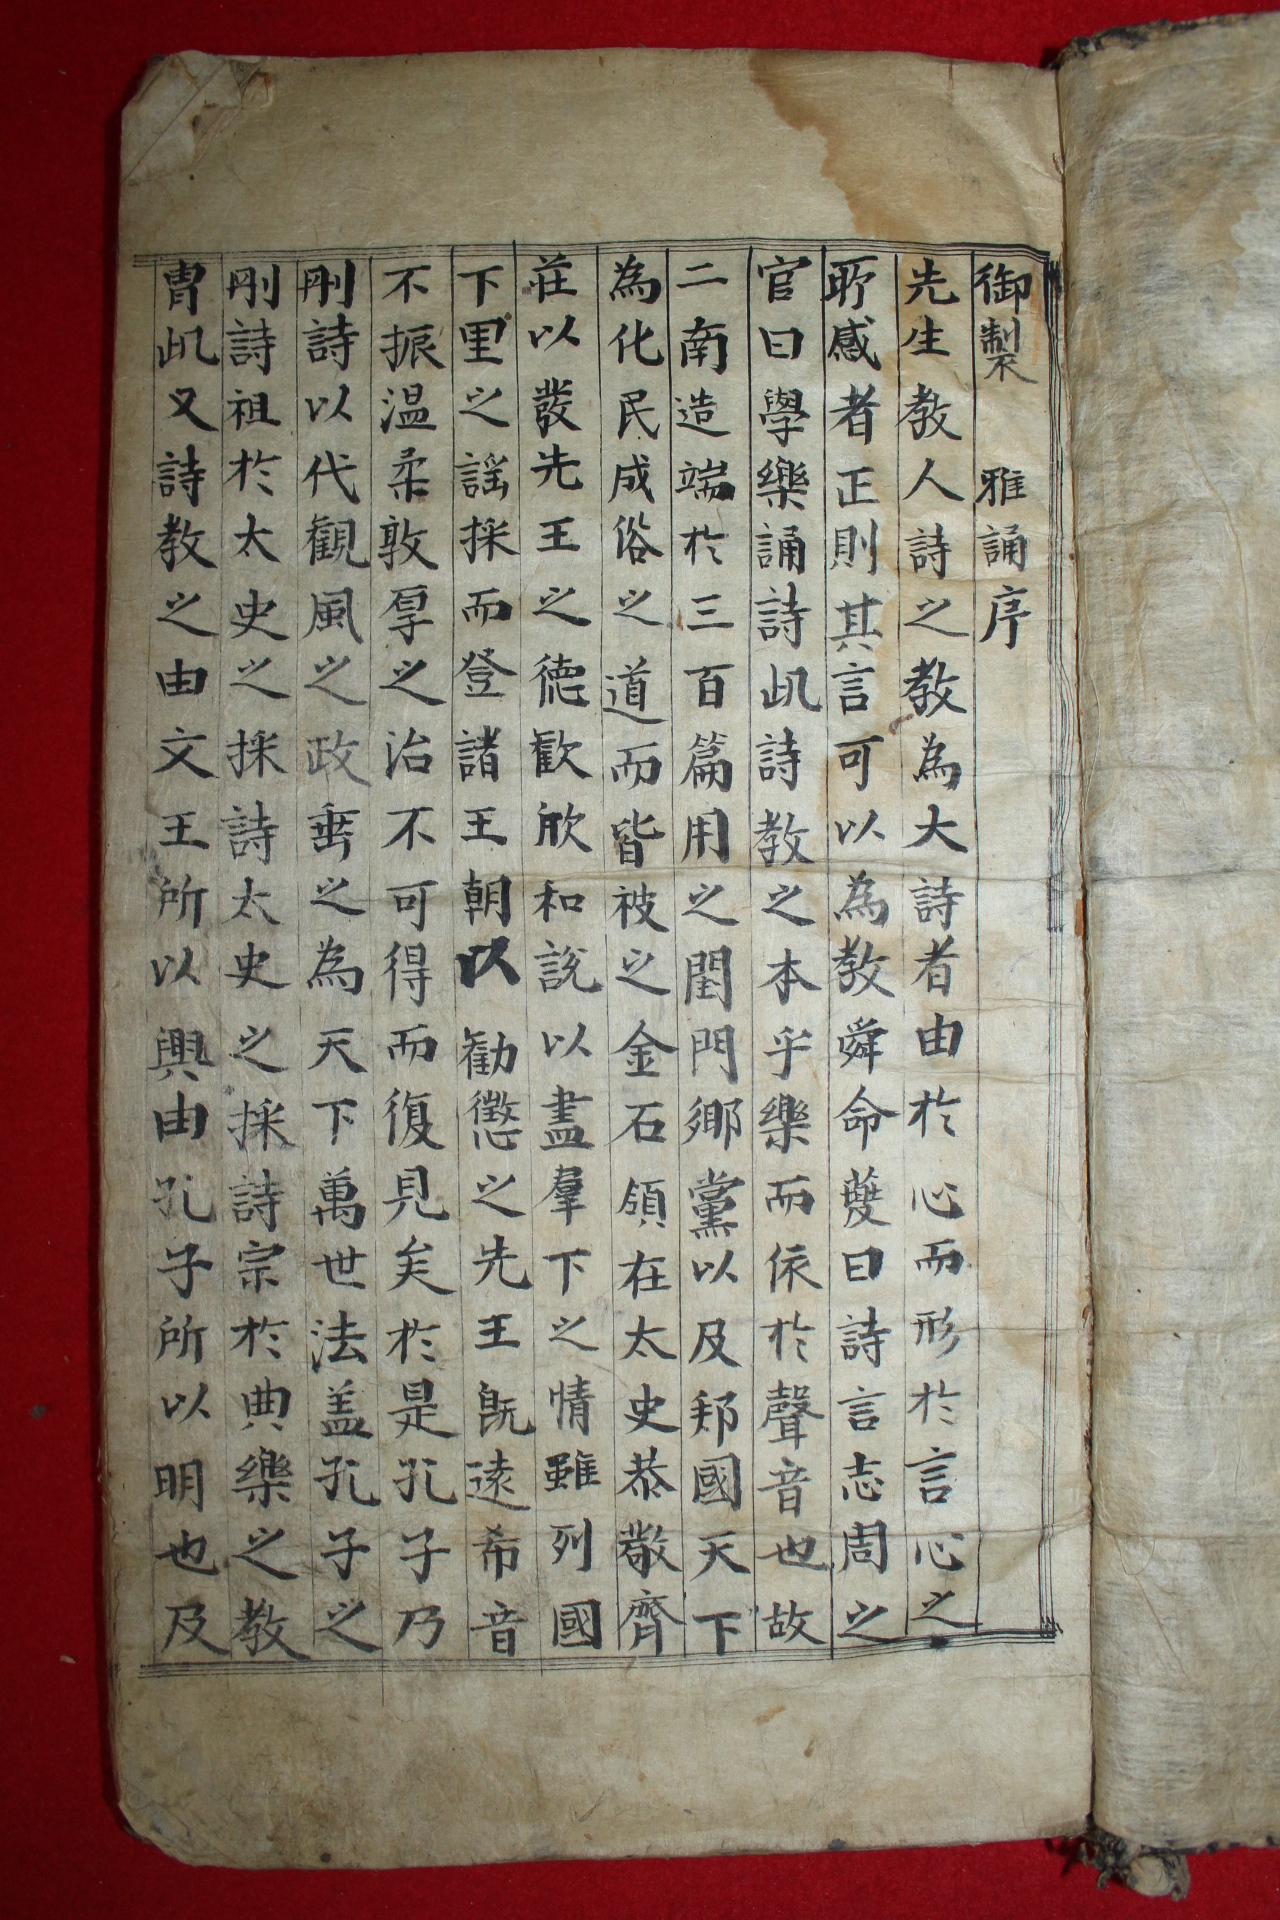 御製 雅誦序
先生教人詩之教為大詩者由於心而形於言心之
所感者正則其言可以為教舜命夔曰詩言志周之
官曰學樂誦詩此詩教之本乎樂而依於聲音也故
二南造端於三百篇用之閨門鄉黨以及邦國天下
為化民成俗之道而皆被之金石領在太史恭敬齊
莊以發先王之德歡欣和說以盡羣下之情雖列國
下里之謠採而登諸王朝以勸懲之先王旣遠希音
不振温柔敦厚之治不可得而復見矣於是孔子乃
刪詩以代觀風之政垂之為天下萬世法盖孔子之
刪詩祖於太史之採詩太史之採詩宗於典樂之教
胄此又詩教之由文王所以興由孔子所以明也及